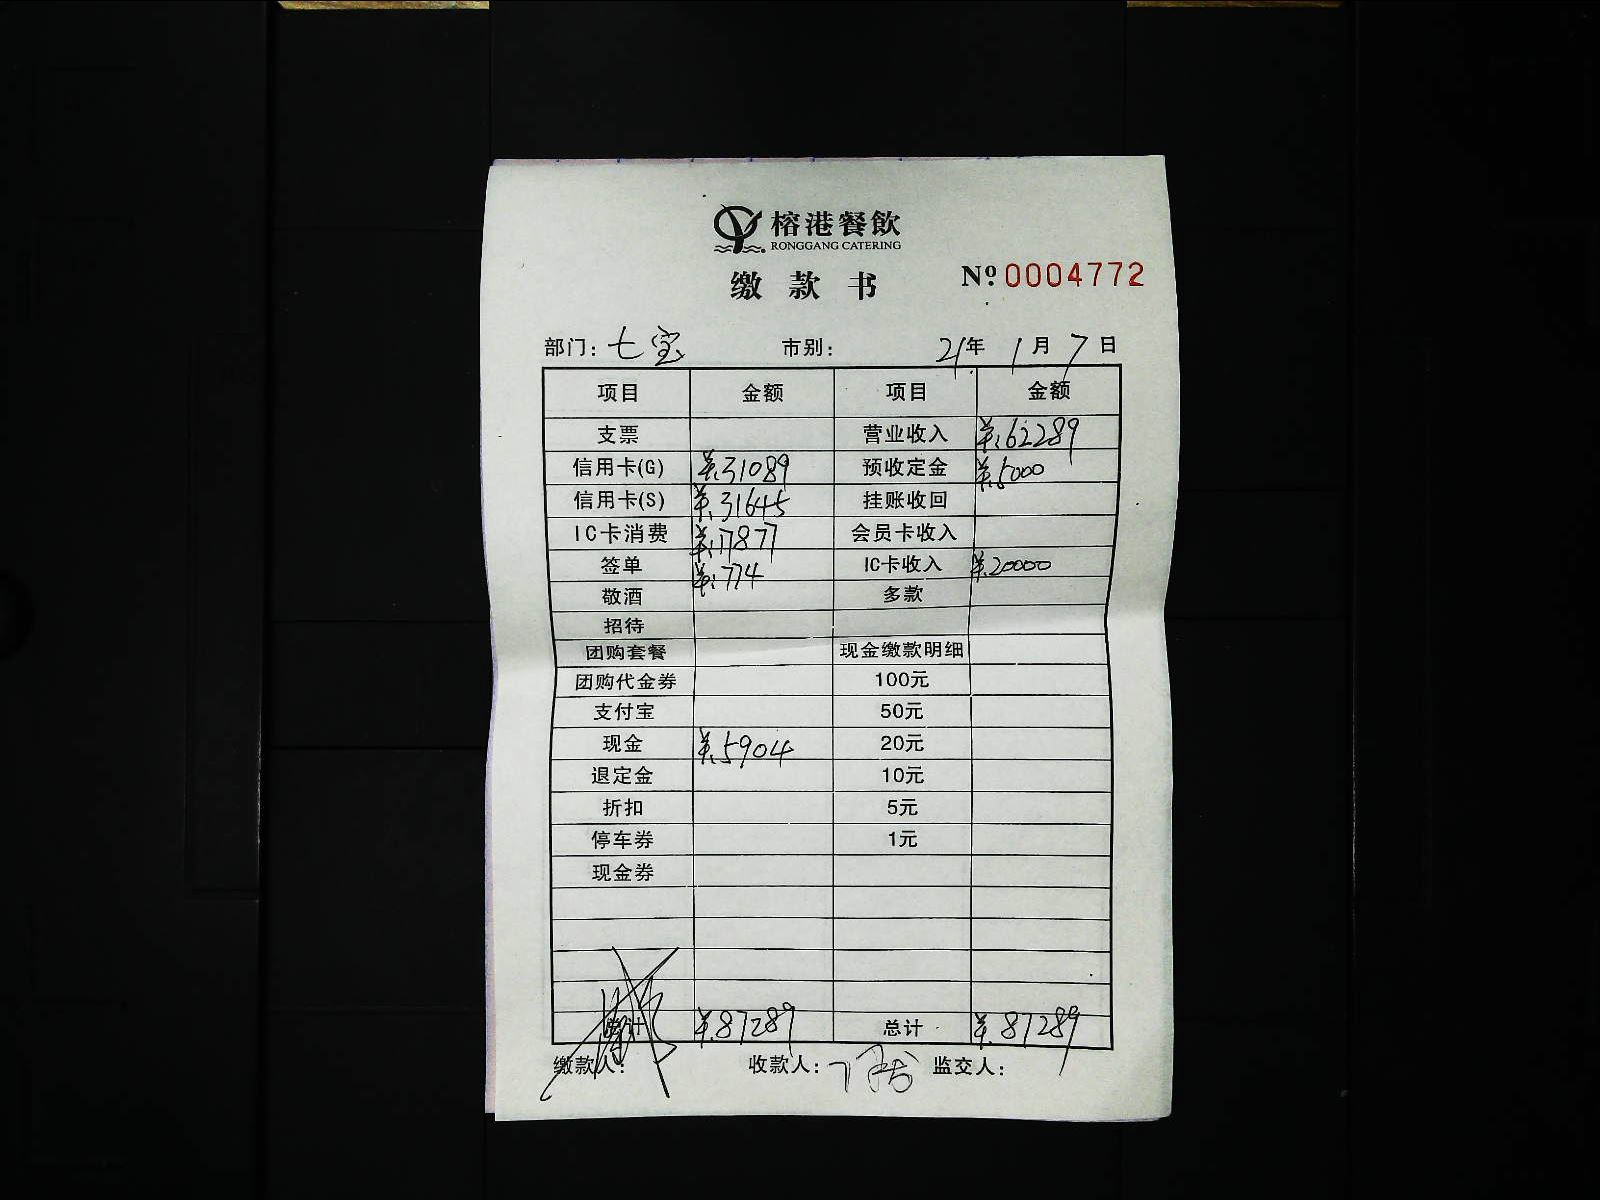 榕港餐飲
RONGGANG CATERING
缴款书 №0004772
部门: 七宝 市别: 21年 1月 7日
项目 金额 项目 金额
支票 营业收入 ¥.62289
信用卡(G) ¥.31089 预收定金 ¥.5000
信用卡(S) ¥.31645 挂账收回
IC卡消费 ¥.17877 会员卡收入
签单 ¥.774 IC卡收入 ¥.20000
敬酒 多款
招待
团购套餐 现金缴款明细
团购代金券 100元
支付宝 50元
现金 ¥.5904 20元
退定金 10元
折扣 5元
停车券 1元
现金券
总计 ¥.87289 总计 ¥.87289
缴款人: 收款人: 监交人: